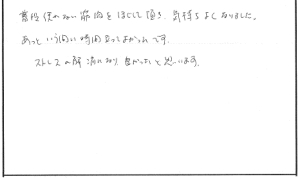 普段使わない筋肉をほぐして頂き、気持ちよくなりました。
あっという間に時間たってよかったです。
ストレスの解消になり、良かったと思います。